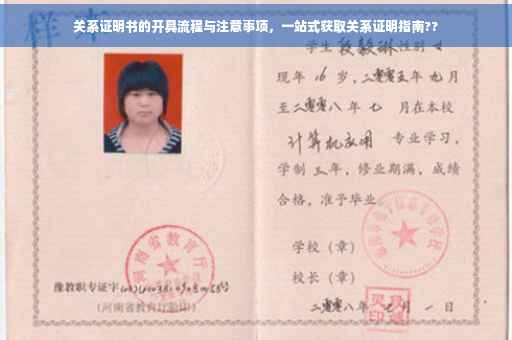 关系证明书的开具流程与注意事项，一站式获取关系证明指南??
样本
学生段毅琳性别女
现年16岁，二零零五年九月
至二零零八年七 月在本校
计算机应用 专业学习，
学制三年，修业期满，成绩
合格，准予毕业
学校（章）
校长（章）
二零零八年七月一日
河南省教育厅
豫教职专证字
（河南省教育厅验印）